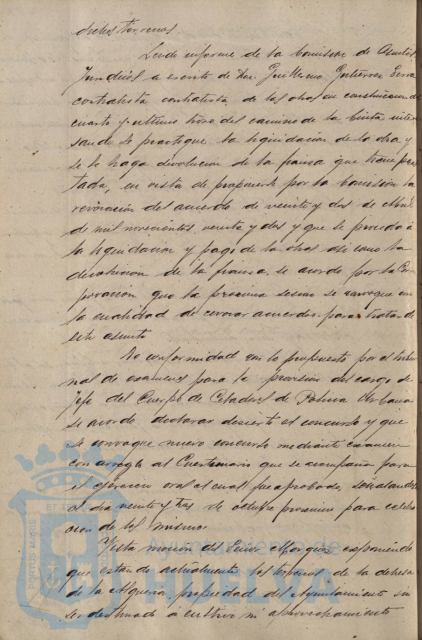 dichos terrenos.
Leido informe de la Comisión de Asuntos
Juridicos a escrito de Don Guillermo Gutiérrez Serra
contratista contratista de las obras de construccion del
cuarto y ultimo trozo del camino de la Cinta intere
sando se practique la liquidación de la obra y
se le haga devolucion de la fianza que tiene pres
tada, en vista de proponerse por la Comisión la
revocación del acuerdo de veinte y dos de Abril
de mil novecientos veinte y dos y que se proceda a
la liquidacion y pago de la obra asi como la
devolucion de la fianza, se acordo por la Cor
poración que la proxima sesion se convoque con
la cualidad de revocar acuerdos para tratar de
este asunto
De conformidad con lo propuesto por el tribu
nal de examenes para la provision del cargo de
Jefe del Cuerpo de Celadores de Policia Urbana
se acordo declarar desierto el concurso y que
se convoque nuevo concurso mediante examen
con arreglo al Cuestionario que se acompaña para
el ejercicio oral el cual fue aprobado, señalandose
el dia veinte y tres de octubre proximo para celebra
cion de los mismos.
Vista mocion del Señor Marquez exponiendo
que estan de actualmente los terrenos de la dehesa
de la Alqueria, propiedad del Ayuntamiento sin
ser destinado a cultivo ni aprovechamiento
Ayuntamiento de
HUELVA